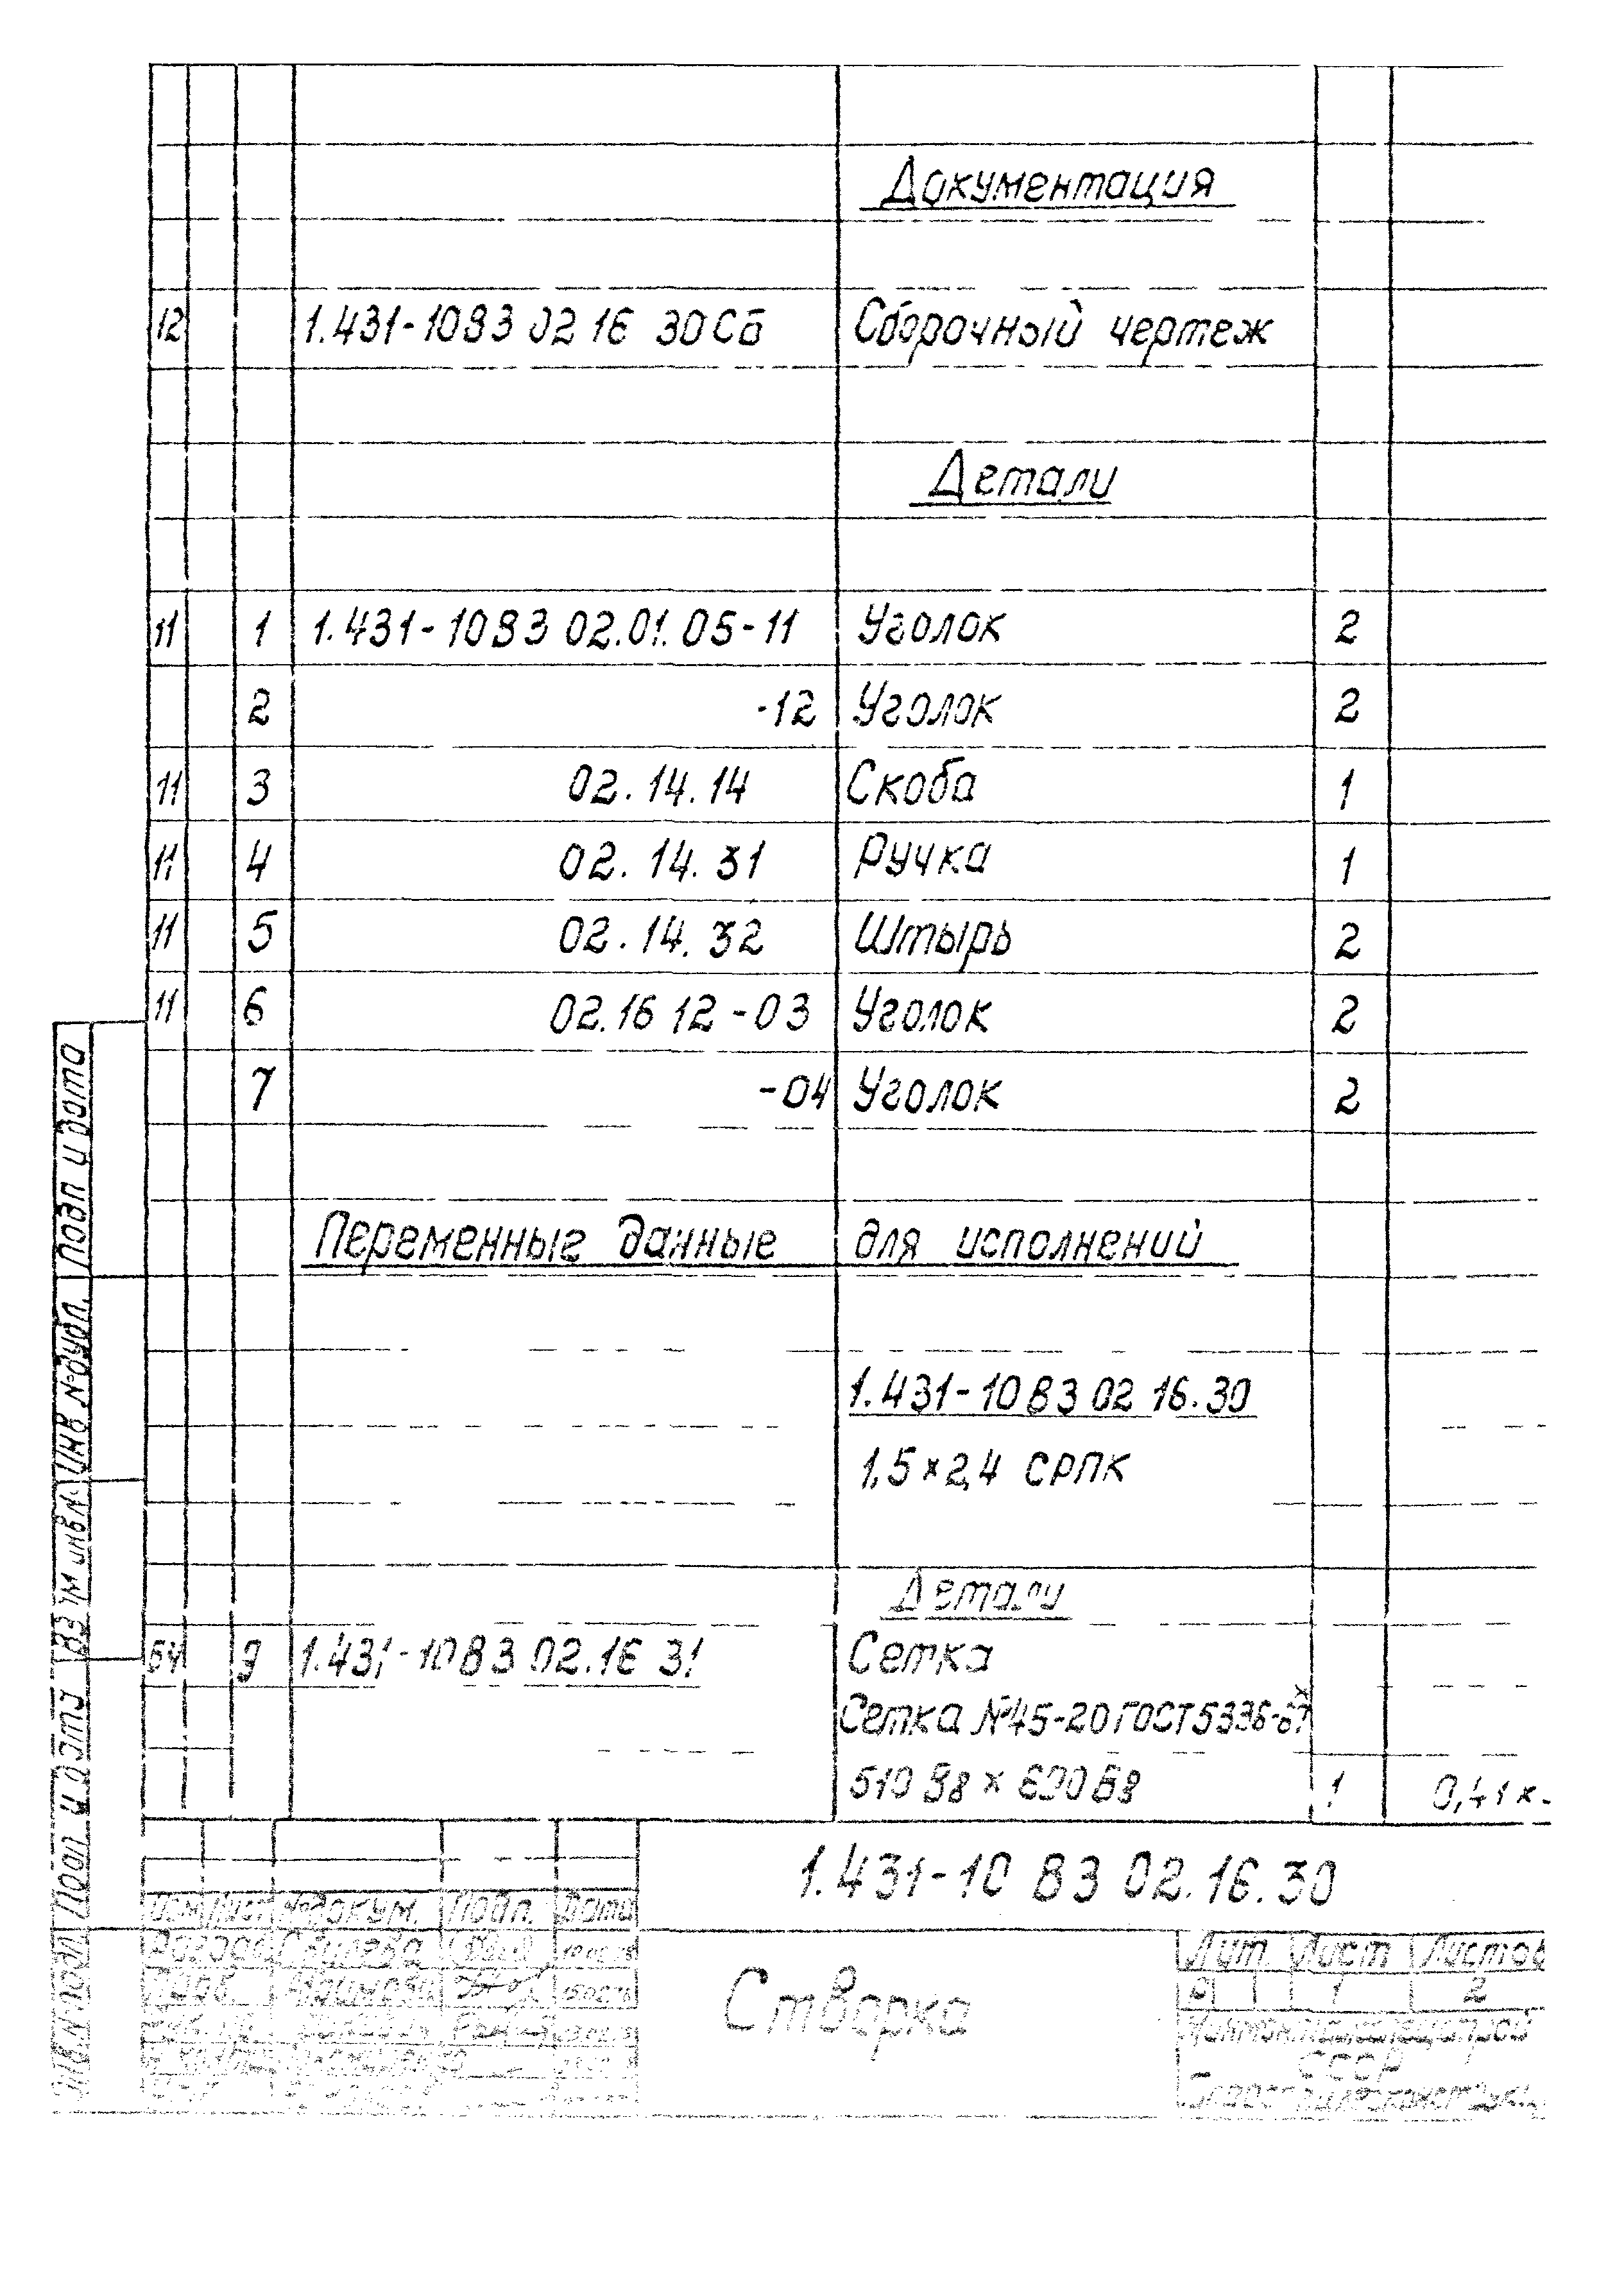 Документация
12 1.431-10 В3 02 16 30 Сб Сборочный чертеж
Детали
11 1 1.431-10 В3 02.01.05-11 Уголок 2
2 -12 Уголок 2
11 3 02.14.14 Скоба 1
11 4 02.14.31 Ручка 1
11 5 02.14.32 Штырь 2
11 6 02.16 12-03 Уголок 2
7 -04 Уголок 2
Переменные данные для исполнений
1.431-10 В3 02 16.30
1,5×2,4 СРПК
Детали
БЧ 9 1.431-10 В3 02.16 31 Сетка
Сетка №45-20 ГОСТ 5336-67*
1 0,41 к
1.431-10 В3 02.16.30
Изм Лист № докум. Подп. Дата
Створка
Лит. Лист Листов
1 2
СССР
Подп и дата
Инв № дубл.
Взам инв №
Подп. и дата
Инв № подл